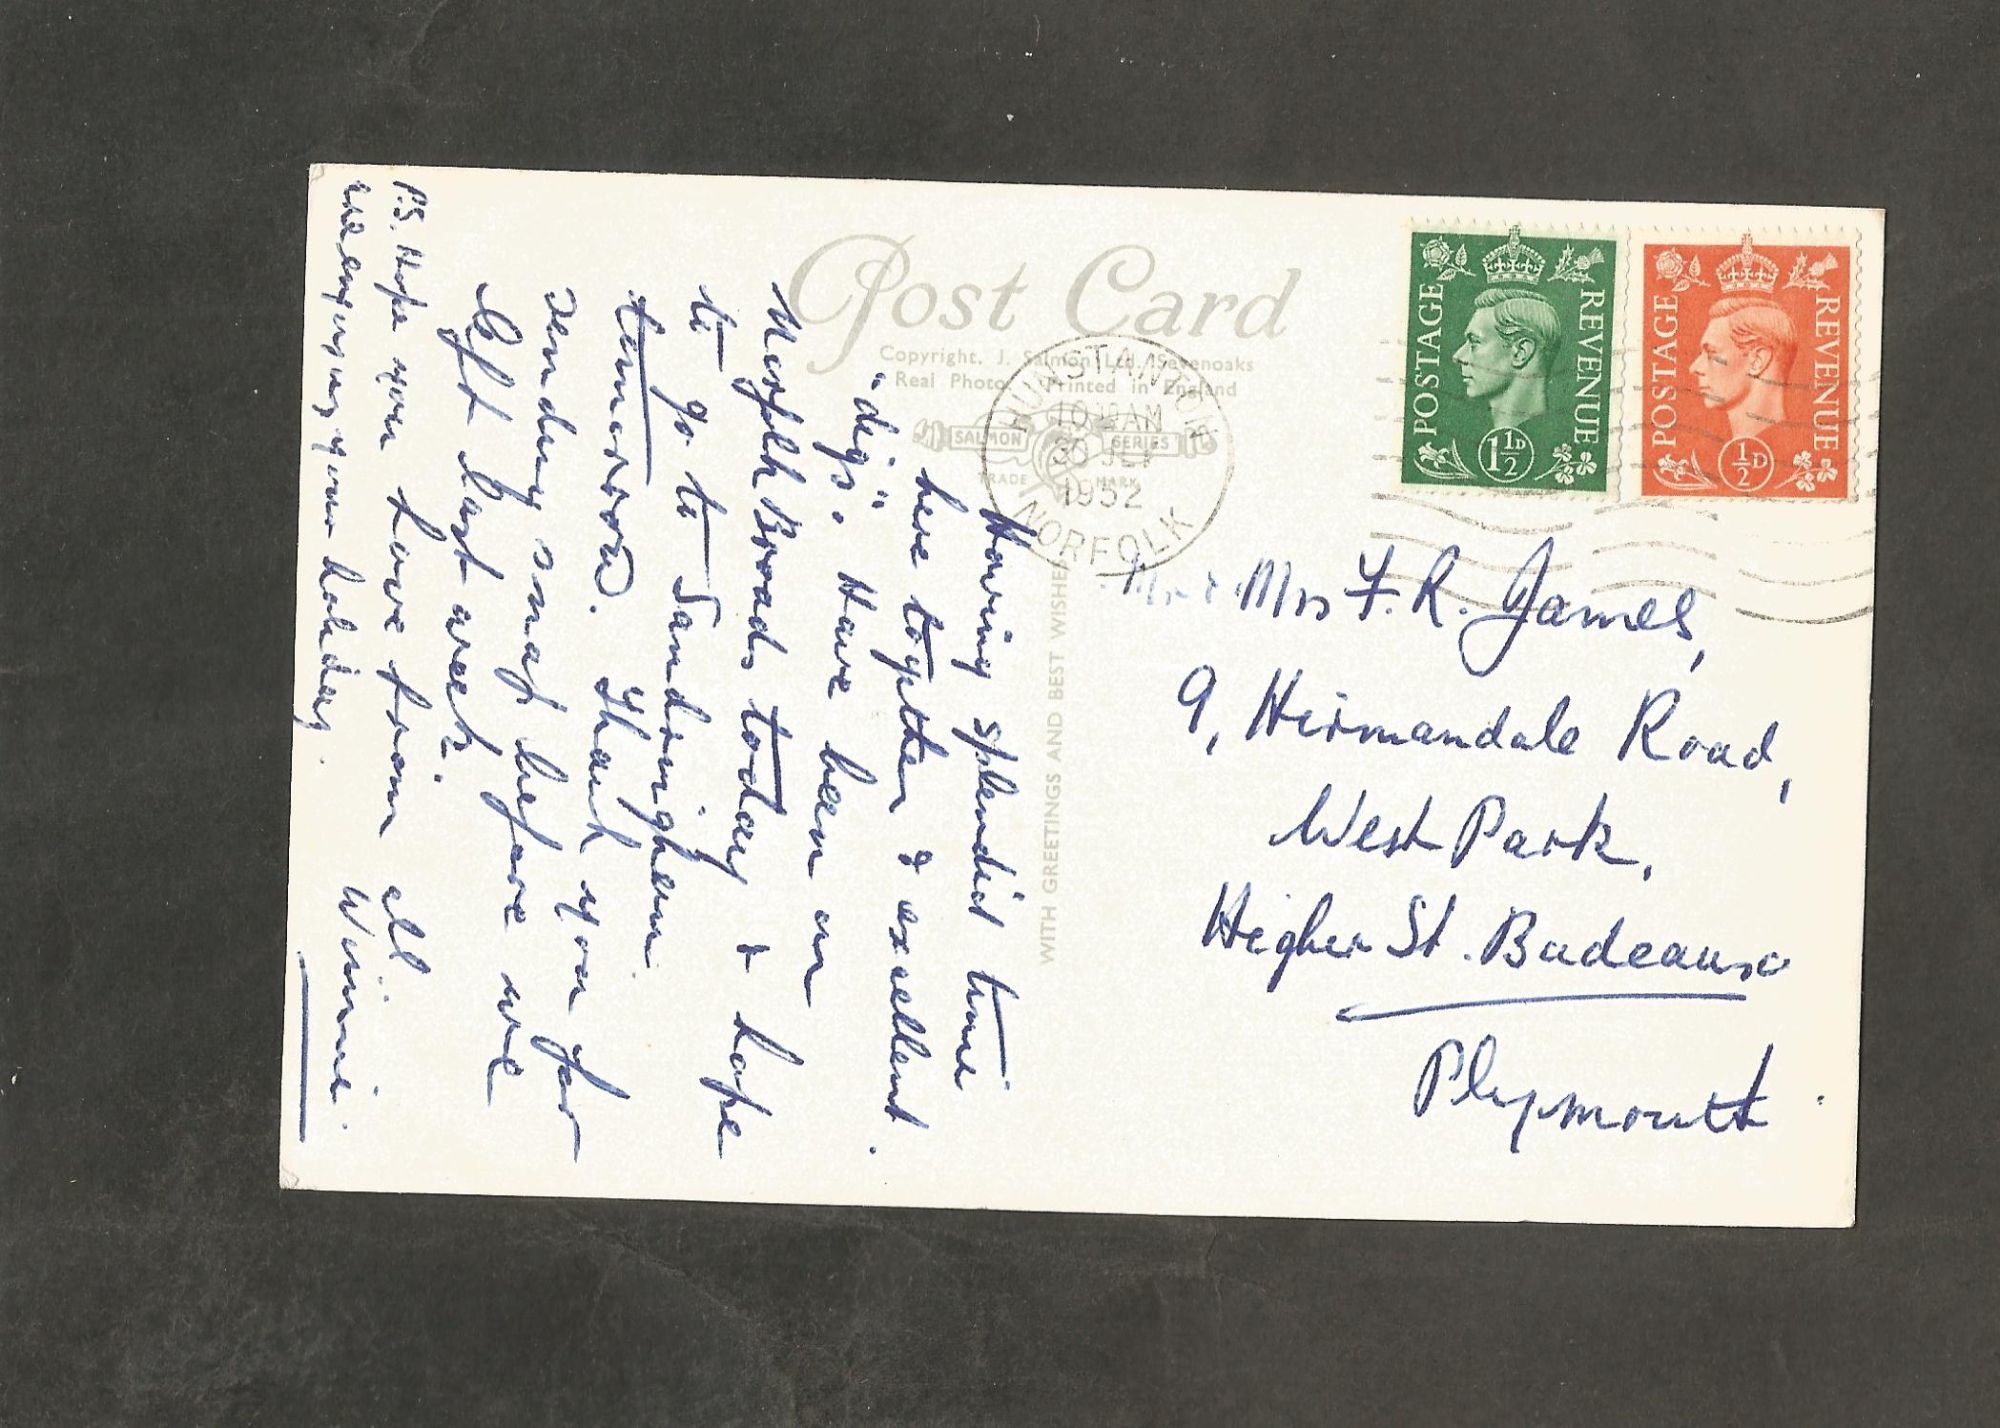 Post Card
Copyright. J. Salmon Ltd. Sevenoaks
Real Photo. Printed in England
SALMON SERIES
TRADE MARK
WITH GREETINGS AND BEST WISHES
HUNSTANTON
10 AM
30
1952
NORFOLK
POSTAGE REVENUE
1½D
POSTAGE REVENUE
½D
Having splendid time
here together & excellent
"digs". Have been on
Norfolk Broads today & hope
to go to Sandringham
tomorrow. Thank you for
sending snap before we
left last week.
P.S. Hope you Love from all
are enjoying your holiday. Winnie.
Mr & Mrs F. R. James,
9, Hirmandale Road,
West Park,
Higher St. Budeaux
Plymouth